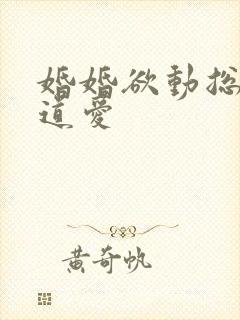 婚婚欲動總
道愛
黃奇帆